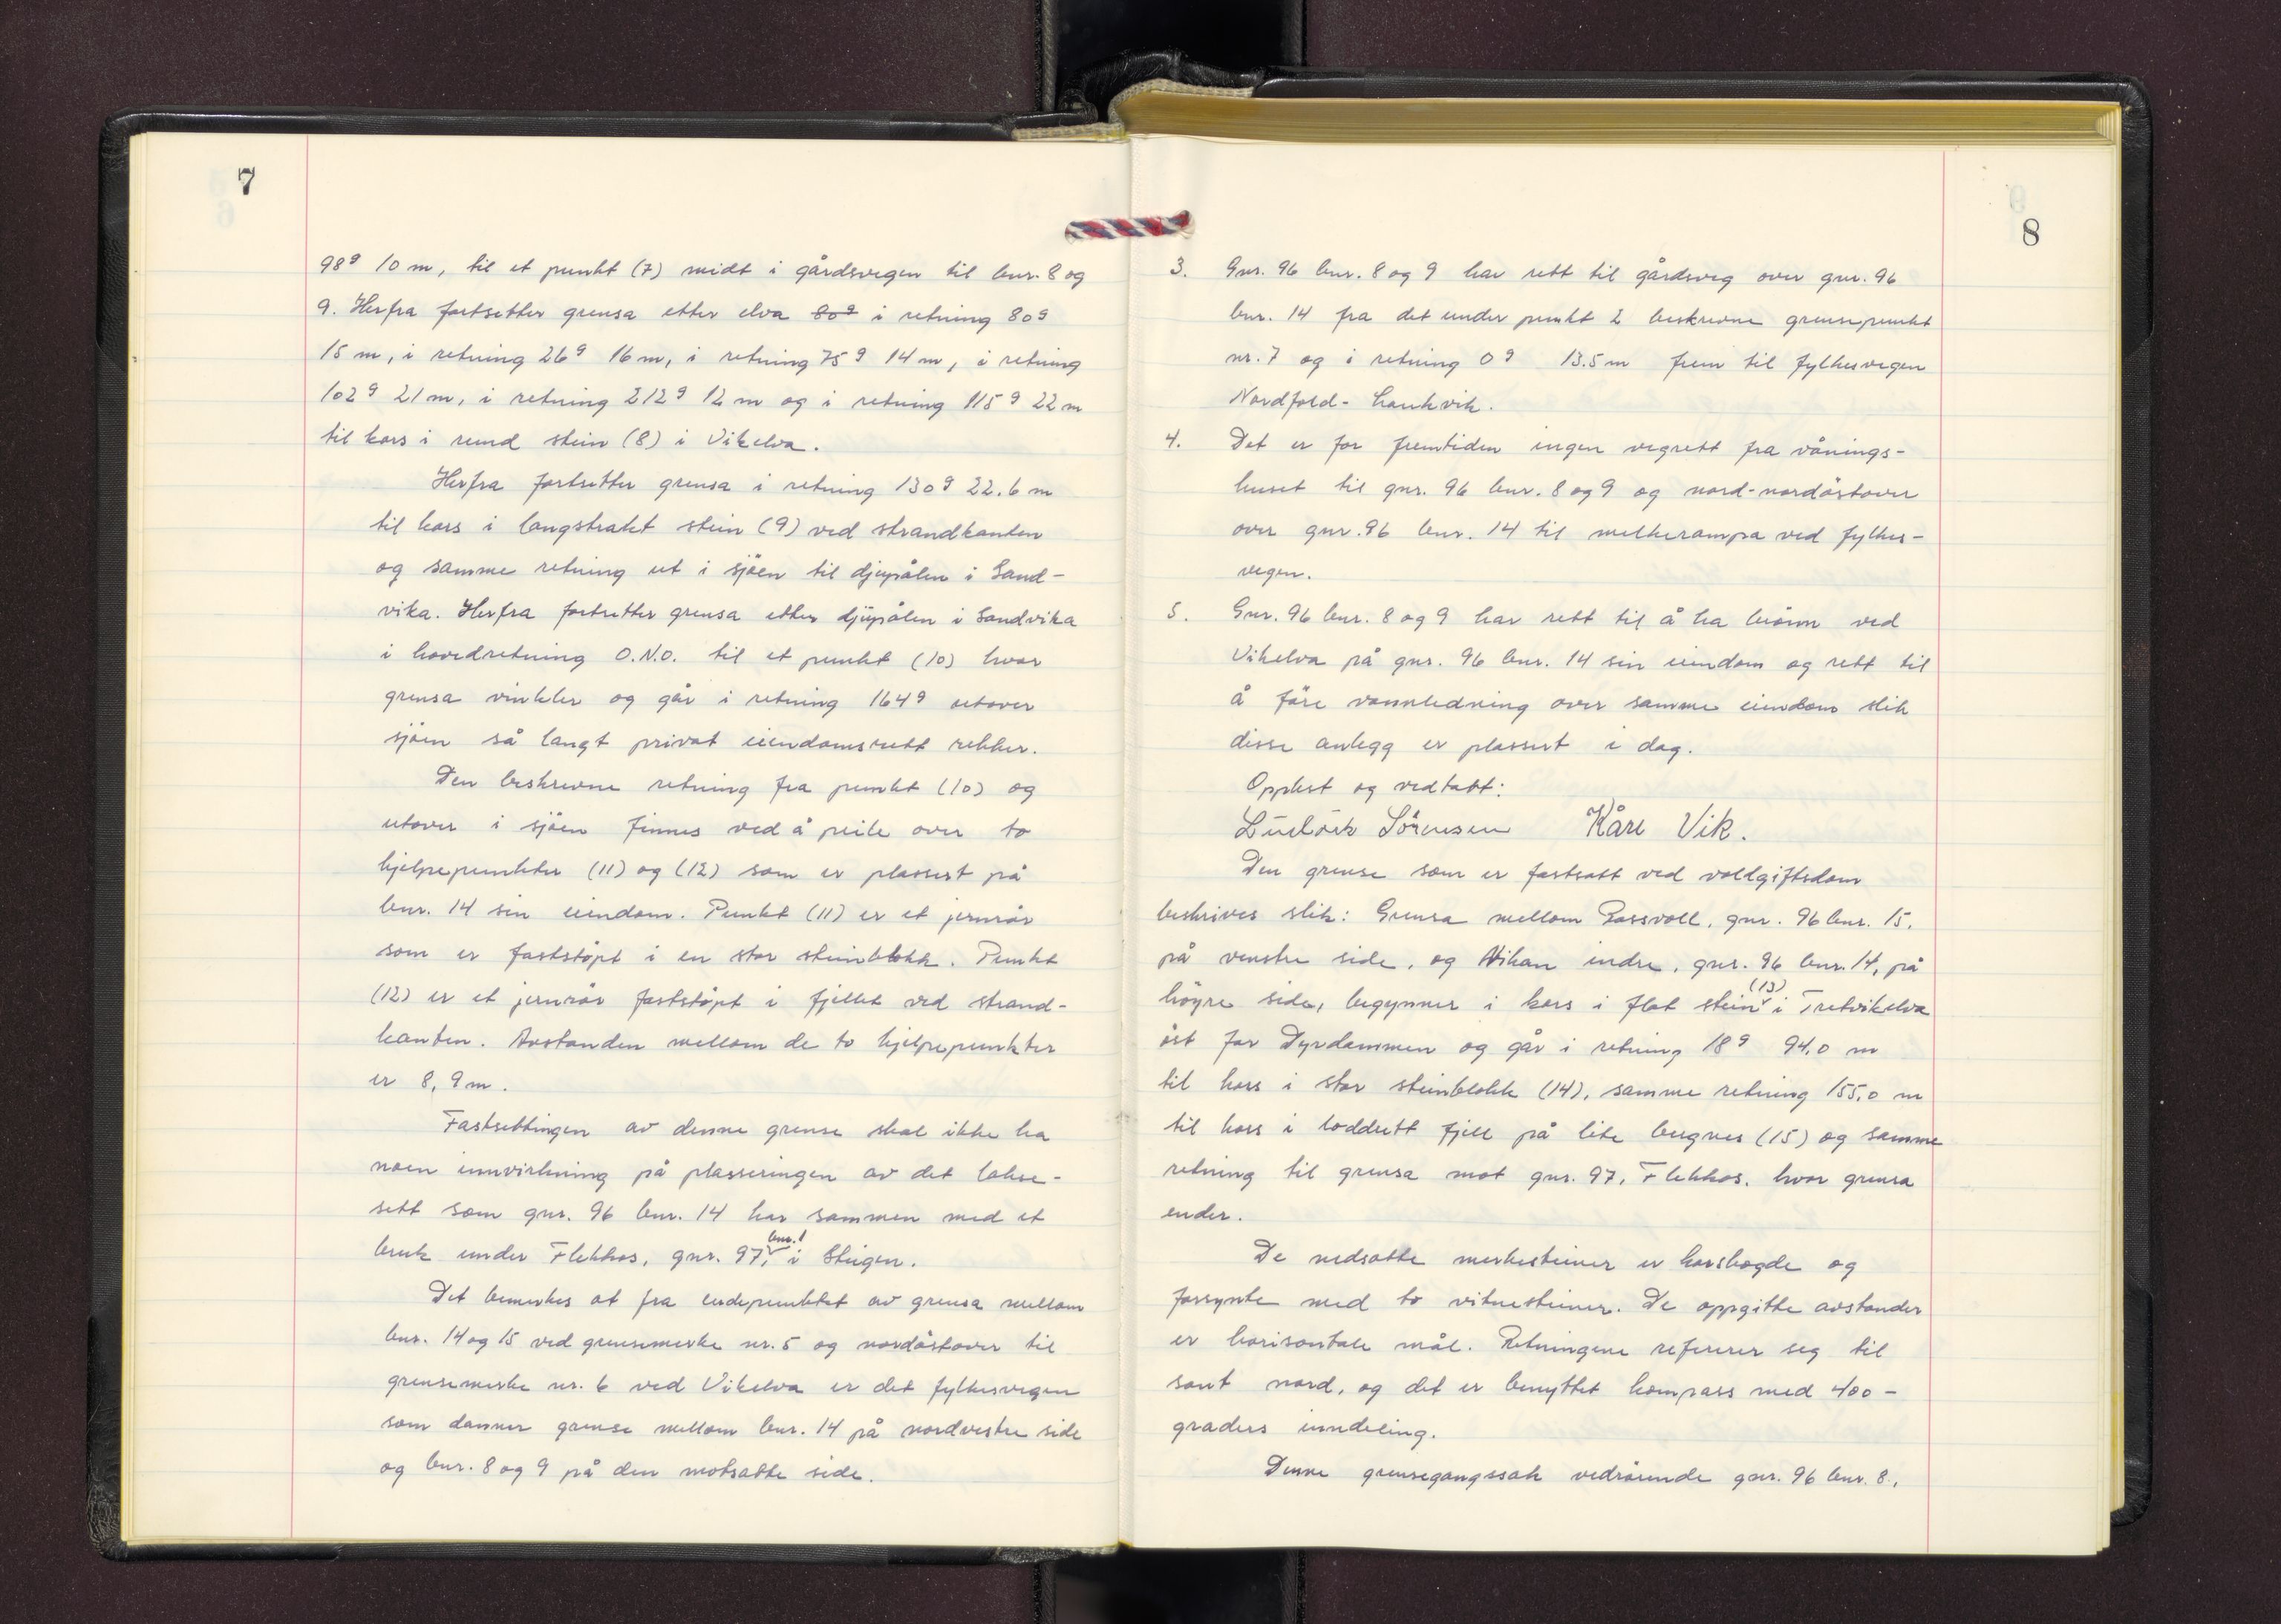 7
98⁹ 10 m, til et punkt (7) midt i gårdsvegen til bnr. 8 og
9. Herfra fortsetter grensa etter elva 80⁹ i retning 80⁹
15 m, i retning 26⁹ 16 m, i retning 75⁹ 14 m, i retning
102⁹ 21 m, i retning 212⁹ 12 m og i retning 115⁹ 22 m
til kors i rund stein (8) i Vikelva.
Herfra fortsetter grensa i retning 130⁹ 22.6 m
til kors i langstrakt stein (9) ved strandkanten
og samme retning ut i sjöen til djupålen i Sand-
vika. Herfra fortsetter grensa etter djupålen i Sandvika
i hovedretning O.N.O. til et punkt (10) hvor
grensa vinkler og går i retning 164⁹ utover
sjöen så langt privat eiendomsrett rekker.
Den beskrevne retning fra punkt (10) og
utover i sjöen finnes ved å peile over to
hjelpepunkter (11) og (12) som er plassert på
bnr. 14 sin eiendom. Punkt (11) er et jernrör
som er faststöpt i en stor steinblokk. Punkt
(12) er et jernrör faststöpt i fjellet ved strand-
kanten. Avstanden mellom de to hjelpepunkter
er 8,9 m.
Fastsettingen av denne grense skal ikke ha
noen innvirkning på plasseringen av det lakse-
sett som gnr. 96 bnr. 14 har sammen med et
bruk under Flekkos, gnr. 97, bnr. 1 i Steigen.
Det bemerkes at fra endepunktet av grensa mellom
bnr. 14 og 15 ved grensemerke nr. 5 og nordöstover til
grensemerke nr. 6 ved Vikelva er det fylkesvegen
som danner grense mellom bnr. 14 på nordvestre side
og bnr. 8 og 9 på den motsatte side.
8
3. Gnr. 96 bnr. 8 og 9 har rett til gårdsveg over gnr. 96
bnr. 14 fra det under punkt 2 beskrevne grensepunkt
nr. 7 og i retning 0⁹ 13.5 m frem til fylkesvegen
Nordfold-
4. Det er for fremtiden ingen vegrett fra vånings-
huset til gnr. 96 bnr. 8 og 9 og nord-nordöstover
over gnr. 96 bnr. 14 til melkerampa ved fylkes-
vegen.
5. Gnr. 96 bnr. 8 og 9 har rett til å ha brönn ved
Vikelva på gnr. 96 bnr. 14 sin eiendom og rett til
å före vannledning over samme eiendom slik
disse anlegg er plassert i dag.
Opplest og vedtatt:
Sörensen Kåre Vik.
Den grense som er fastsatt ved voldgiftsdom
beskrives slik: Grensa mellom Rossvoll, gnr. 96 bnr. 15,
på venstre side, og Vikan indre, gnr. 96 bnr. 14, på
höyre side, begynner i kors i flat stein (13) i Tretvikelva
öst for Dyrdammen og går i retning 18⁹ 94,0 m
til kors i stor steinblokk (14), samme retning 155,0 m
til kors i loddrett fjell på lite bergnes (15) og samme
retning til grensa mot gnr. 97, Flekkos, hvor grensa
ender.
De nedsatte merkesteiner er korshogde og
forsynte med to vitnesteiner. De oppgitte avstander
er horisontale mål. Retningene refererer seg til
sant nord, og det er benyttet kompass med 400-
graders inndeling.
Denne grensegangssak vedrörende gnr. 96 bnr. 8,